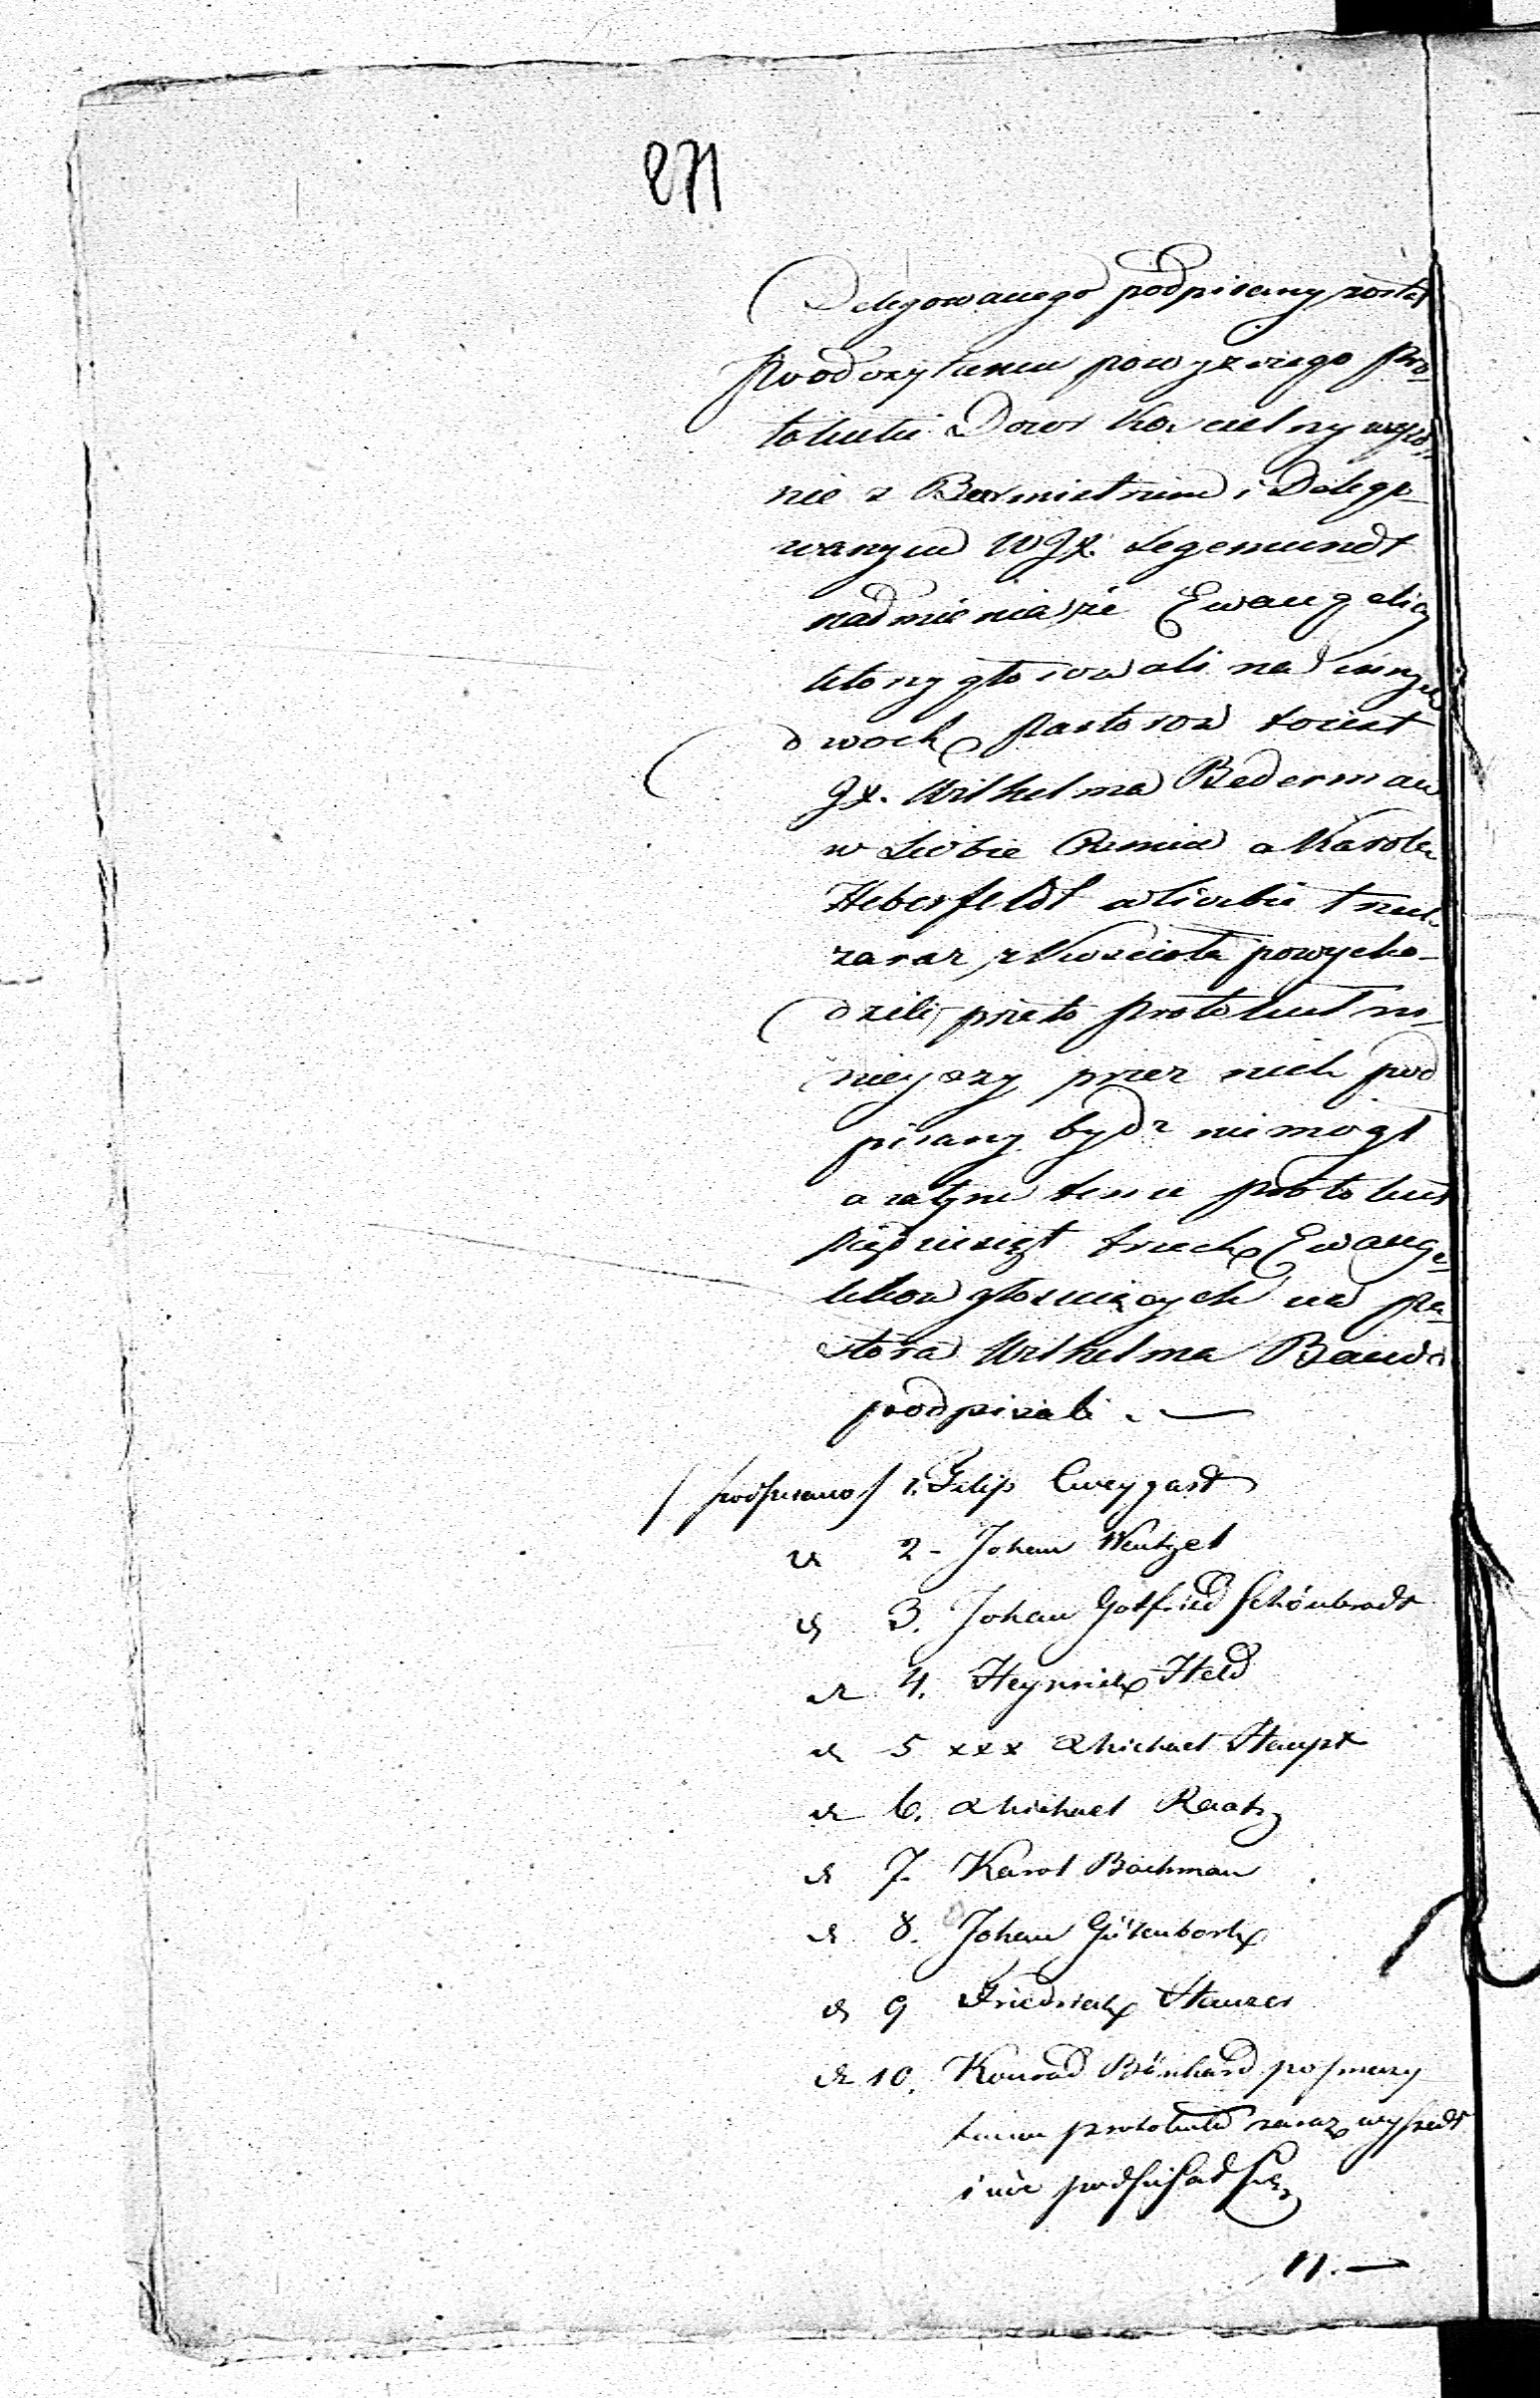 271
Delegowanego podpisany został
Po odczytaniu powyższego Pro-
tokułu Dozor Koscielny wspol-
nie z Burmistrzem i Delego-
wanym WJX. Legemundt
nadmienia, że Ewangelicy
ktorzy głosowali na innych
dwoch Pastorow to iest
JX. Wilhelma Bederman
w Liczbie Osmiu a Karola
Heberfeldt w liczbie trzech
zaraz z Kościoła powycho-
dzili, przeto Protokuł ni-
nieyszy przez nich pod
pisany bydz nie mogł
a zatym temu Protokuł
Pięćdziesiąt trzech Ewange-
likow głosuiących na Pa-
stora Wilhelma Bando
podpisali. —
/ podpisano / 1. Filip Cweygart
2 - Johan Wentzel
3. Johan Gotfried Schönbrodt
4. Heynrich Held
5 xxx Michael Haupt
6. Michael Raatz
7. Karol Bachman
8. Johan Gütenborch
9 Friedrich Stanzer
10. Konrad Bönhard po
protokułu zaraz wyszedł
i nie podpisał się
11. —